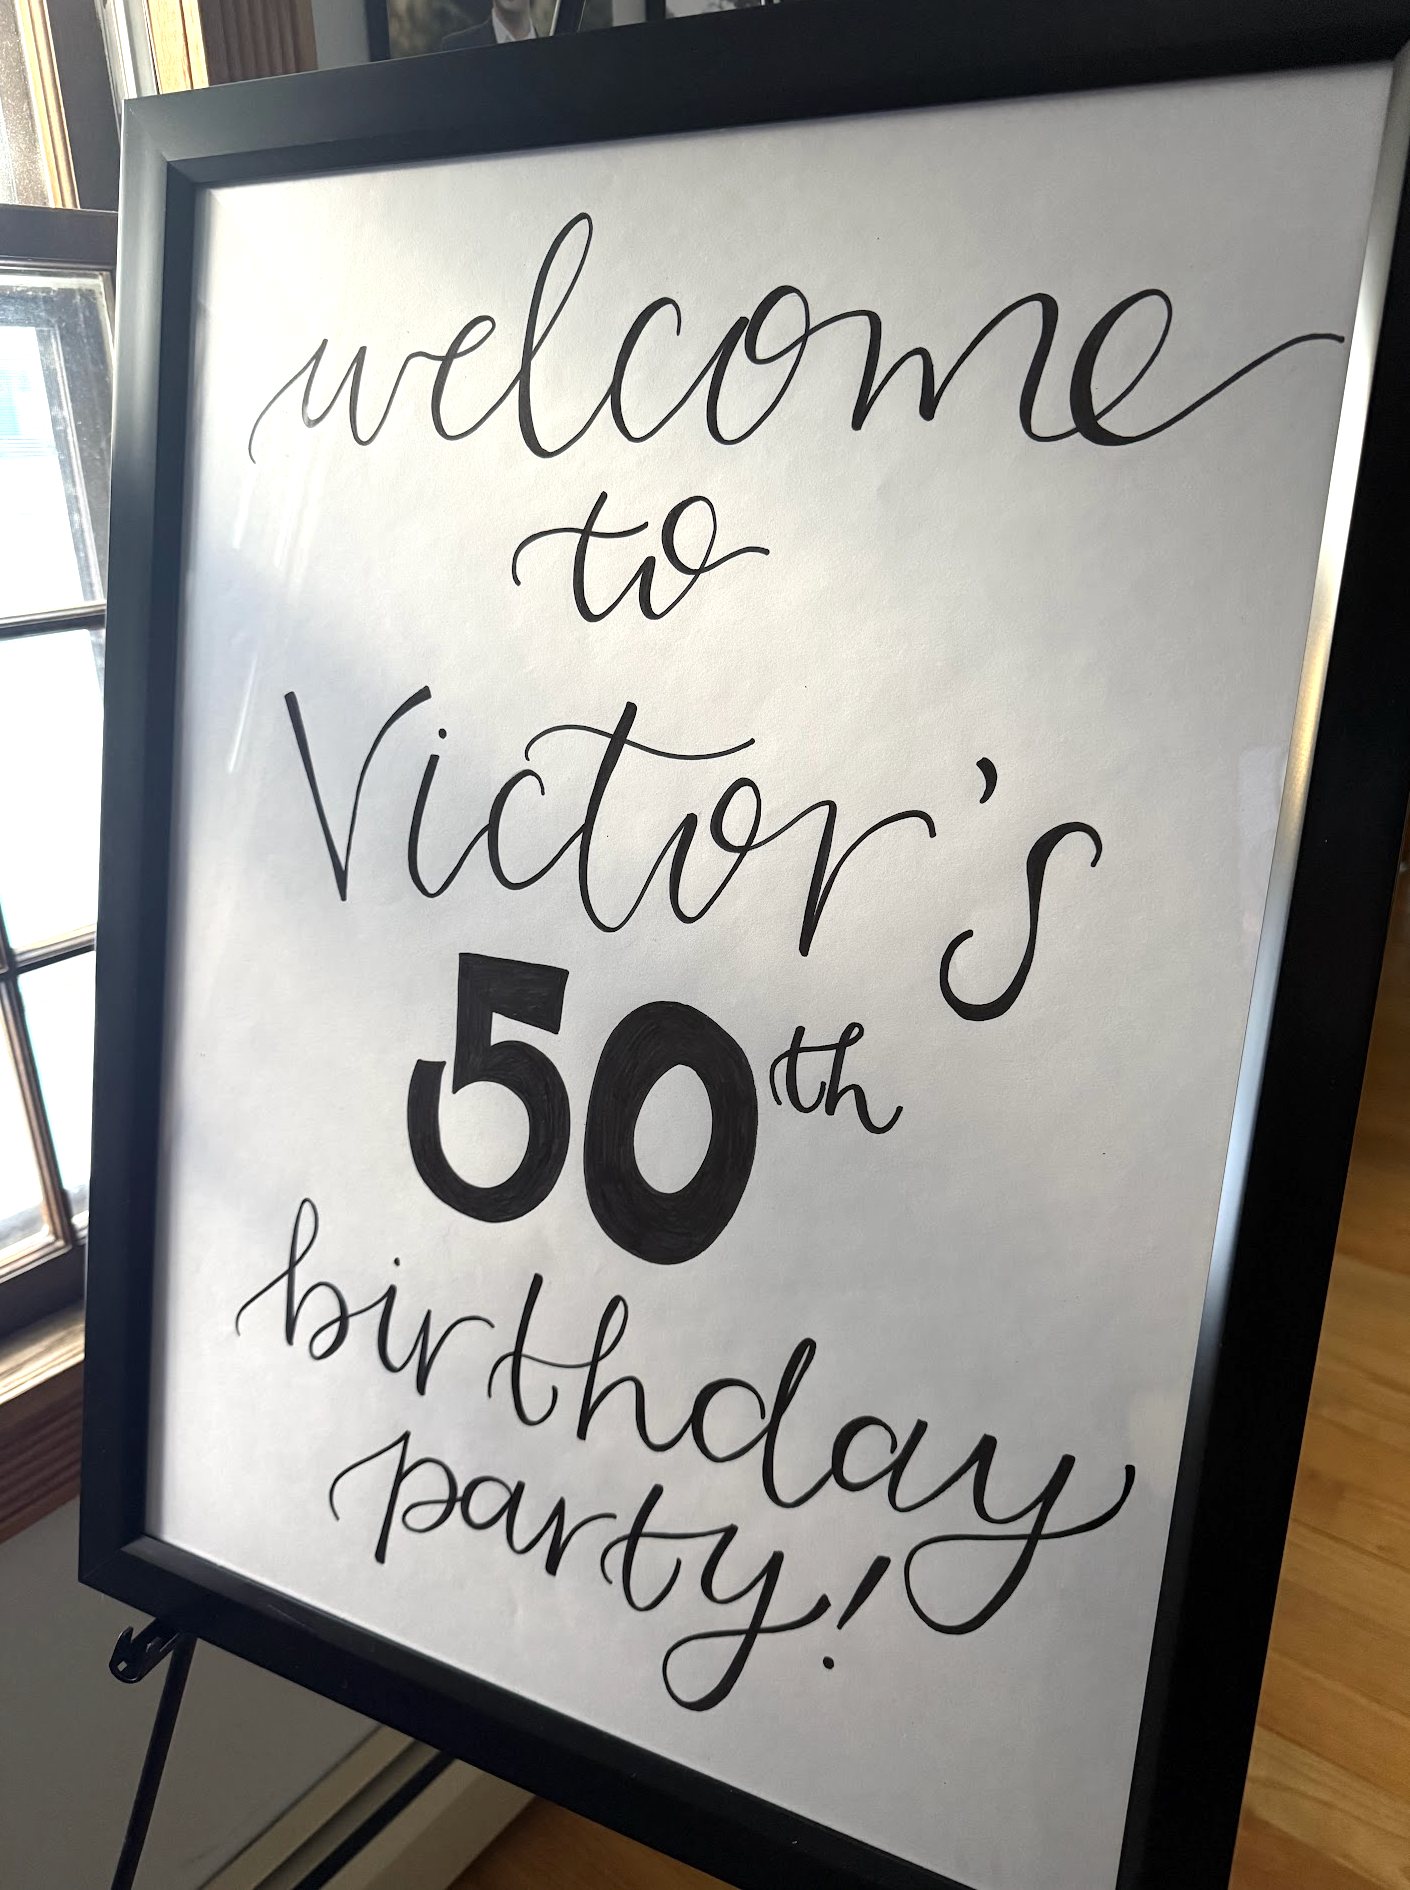 welcome
to
Victor's
50th
birthday
party!